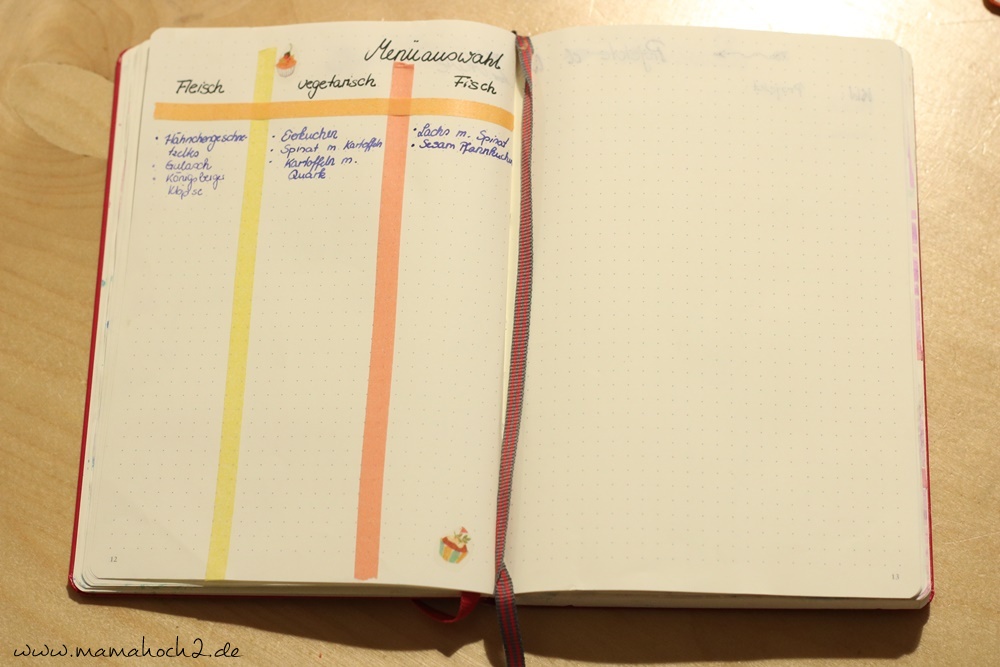 Menüauswahl
Fleisch
• Hähnchengeschne-
tzeltes
• Gulasch
• Königsberger
Klopse
vegetarisch
• Eierkuchen
• Spinat m. Kartoffeln
• Kartoffeln m.
Quark
Fisch
• Lachs m. Spinat
• Sesam Pfannkuchen
12
13
www.mamahoch2.de